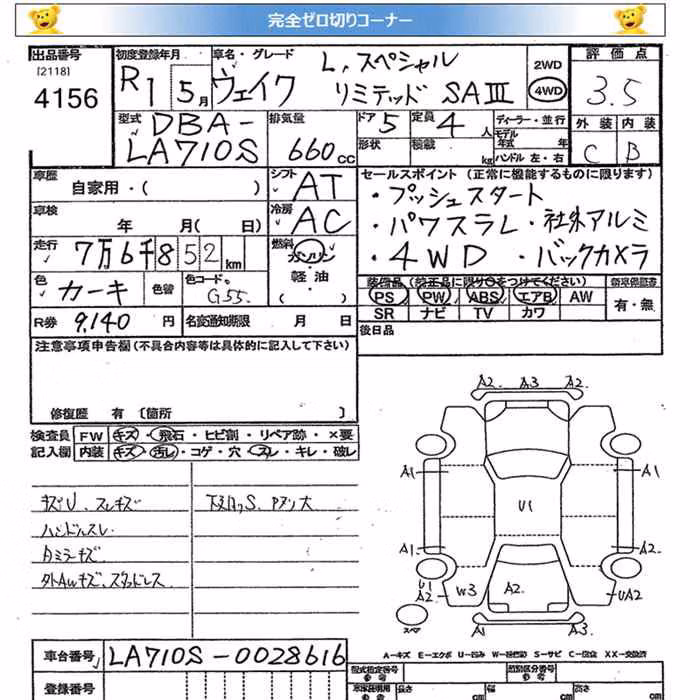 完全ゼロ切りコーナー
出品番号 初度登録年月 車名・グレード L,スペシャル 2WD 評価点
[2118] R1 5月 ウェイク リミテッド SAⅢ 4WD 3.5
4156
型式 DBA- 排気量 ドア 5 定員 4人 ディーラー・並行 外装 内装
LA710S 660cc 形状 積載 kg モデル年式 年式 ハンドル 左・右 C B
車歴 自家用・( ) シフト AT セールスポイント(正常に機能するものに限ります)
車検 年 月(日) 冷房 AC ・プッシュスタート
・パワスラL・社外アルミ
走行 7万6千852km 燃料 ガソリン ・4WD ・バックカメラ
軽油
( )
色 カーキ 色替 色コード G55 装備品(純正品に限り○をつけてください) 新車保証書
PS PW ABS エアB AW 有・無
SR ナビ TV カワ
R券 9,140円 名変通知期限 月 日 後日品
注意事項申告欄(不具合内容等は具体的に記入して下さい)
修復歴 有〔箇所 〕
検査員 FW キズ・飛石・ヒビ割・リペア跡・×要
記入欄 内装 キズ・汚レ・コゲ・穴・スレ・キレ・破レ
キズU、スレキズ
ハンドルスレ
ミラーキズ
外AWキズ、スタッドレス
下廻りS、
A2 A3 A2
A1 A1
U1
A1 A2
U1
A2 W3 A2 UA2
スペア A1 A3
A-キズ E-エクボ U-凹み W-補修跡 S-サビ C-腐食 XX-交換済
車台番号 LA710S-0028616 型式指定番号 類別区分番号
登録番号 長さ cm 幅 cm 高さ cm